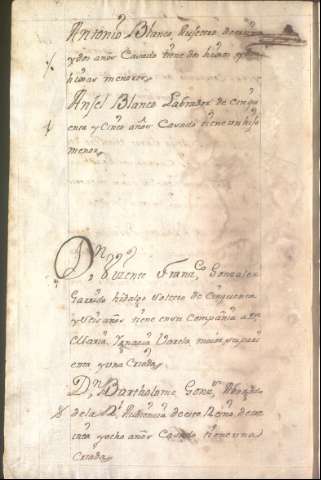 Antonio Blanco
y dos años Casado tiene dos hijos y dos
hijas menores
Angel Blanco Labrador de Cinqu
enta y Cinco años Casado tiene un hijo
menor
Dn Vicente Franco Gonzalez
Garrido hidalgo soltero de Cinquenta
y seis años tiene en su Compañia a Da
Maria Ignacia Varela
enta y una Criada
Dn Bartholome Gonz Abogado
de la Rl Audiencia de este Reino de
enta y ocho años Casado tiene una
Criada